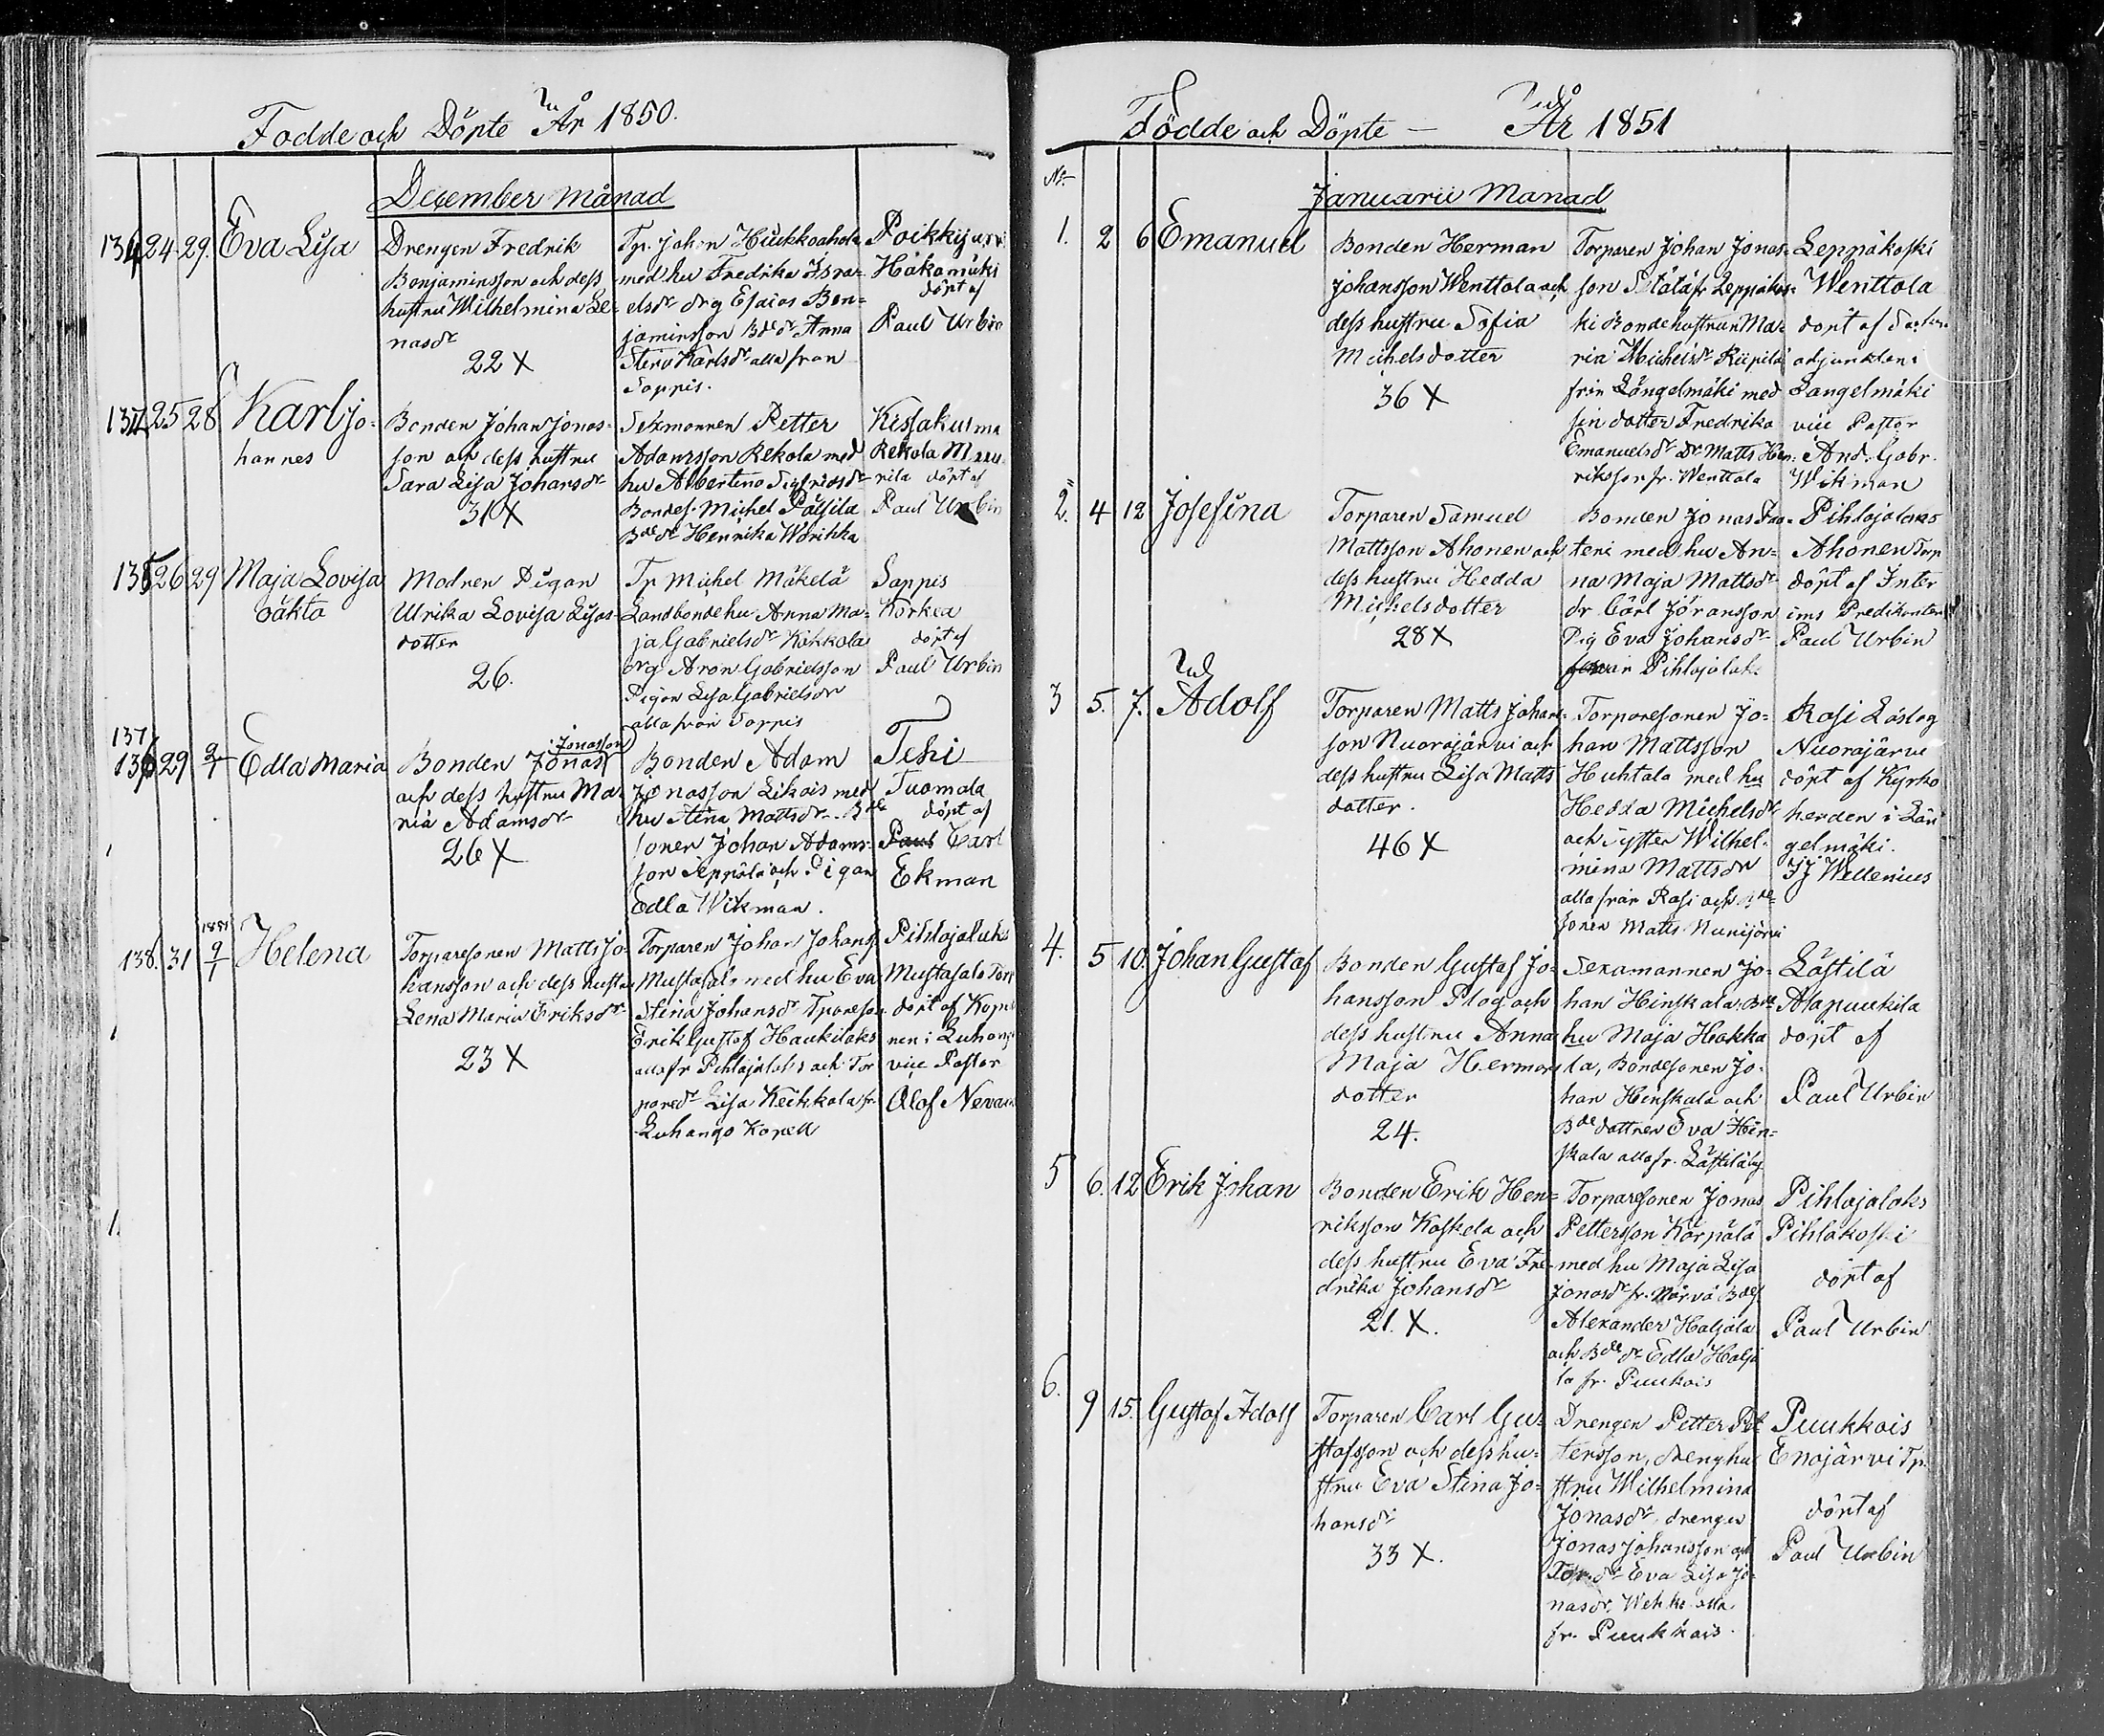 Födde och Döpte År 1850.
December månad
134 24 29. Eva Lisa
Drengen Fredrik
Benjaminsson och dess
hustru Wilhelmina Le=
nasdr
22 X
Tp. Johan Hiukkoahola
med hu Fredrika Isra=
elsdr drg Esaias Ben=
jaminsson Bdedr Anna
Stina Karlsdr alla från
Sappis.
Poikkijärvi
Hakamäki
döpt af
Paul Urbin
25 28 Karl Jo=
hannes
Bonden Johan Jonas=
son och dess hustru
Sara Lisa Johansdr
31 X
Sexmannen Petter
Adamsson Rekola med
hu Albertina Sigfridsdr
Bondes. Michel Pälsilä
Bdedr Henrika
Kissakulma
Rekola
döpt af
Paul Urbin
26 29 Maja Lovisa
oäkta
Modren Pigan
Ulrika Lovisa Lisas=
dotter
26.
Tp Michel Mäkelä
Landbondehu Anna Ma=
ja Gabrielsdr Kokkola
drg Aron Gabrielsson
Pigan Lisa Gabrielsdr
alla från Sappis
Sappis
Korkea
döpt af
Paul Urbin
137
136 29 2/1 Edla Maria
Jonasson
Bonden Jonas
och dess hustru Ma=
ria Adamsdr
26 X
Bonden Adam
Jonasson Likais med
hu Stina Mattsdr Bde
sonen Johan Adams=
son Seppälä och Pigan
Edla Wikman.
Tehi
Tuomala
döpt af
Paul Carl
Ekman
1851
138. 31 9/1 Helena
Torparesonen Matts Jo=
hansson och dess hustru
Lena Maria Eriksdr
23 X
Torparen Johan Johans
Mustasalo med hu Eva
Stina Johansdr Tpareson
Erik Gustaf Haukilaks
alla fr Pihlajalaks och Tor
paredr Lisa Keihkala fr.
Luhango Kapell
Pihlajalaks
Mustasalo Torp
döpt af
nen i Luhango
vice Pastor
Olof
Födde och Döpte — År 1851
No
Januarii Månad
1. 2 6 Emanuel
Bonden Herman
Johansson Wenttola och
dess hustru Sofia
Michelsdotter
36 X
Torparen Johan Jonas=
son fr Leppäkos=
ki Bondehustrun Ma=
ria Michelsdr Riipilä
från Längelmäki med
sin dotter Fredrika
Emanuelsdr Dr Matts Hen=
riksson fr. Wenttola
Leppäkoski
Wenttola
döpt af Pastors
adjunkten i
Langelmäki
vice Pastor
And. Gabr.
Wikman
2. 4 12 Josefina
Torparen Samuel
Mattsson Ahonen och
dess hustru Hedda
Michelsdotter
28 X
Bonden Jonas
teni med hu An=
na Maja Mattsdr
dr Carl Göransson
Pig Eva Johansdr
Pihlajalaks
Pihlajalaks
Ahonen Torp
döpt af Inter
ims Predikanten
Paul Urbin
3 5. 7. Adolf
Torparen Matts Johans=
son Nuorajärvi och
dess hustru Lisa Matts
dotter.
46 X
Torparesonen Jo=
han Mattsson
Huhtala med hu
Hedda Michelsdr
och syster Wilhel=
mina Mattsdr
alla från Rasi och Bde
sonen Matts
Rasi
Nuorajärvi
döpt af Kyrko
herden i Län
gelmäki.
Wellenius
4. 5 10. Johan Gustaf
Bonden Gustaf Jo=
hansson Plog och
dess hustru Anna
Maja Hermans
dotter
24.
Sexmannen Jo=
han Hinskala Bde
hu Maja Hakka
la, Bondesonen Jo=
han Hinskala och
Bde dottren Eva Hin=
skala alla fr. Lästilä by
Lästilä
Alapuukila
döpt af
Paul Urbin
5 6. 12 Erik Johan
Bonden Erik Hen=
riksson Koskela och
dess hustru Eva Fre=
drika Johansdr
21. X.
Torparesonen Jonas
Pettersson Kärpälä
med hu Maja Lisa
Jonasdr fr. Närvä Bdes.
Alexander Haljala
och Bdedr Edla Halja
la fr. Puukois
Pihlajalaks
Pihlakoski
döpt af
Paul Urbin
6. 9 15. Gustaf Adolf
Torparen Carl Gu=
stafsson och dess hu=
stru Eva Stina Jo=
hansdr
33 X.
Drengen Petter Pet
tersson, drenghu
stru Wilhelmina
Jonasdr, drengen
Jonas Johansson och
Tor.dr Eva Lisa Jo=
nasdr, alla
fr. Puukkois.
Puukkois
Enojärvi Tp.
döpt af
Paul Urbin